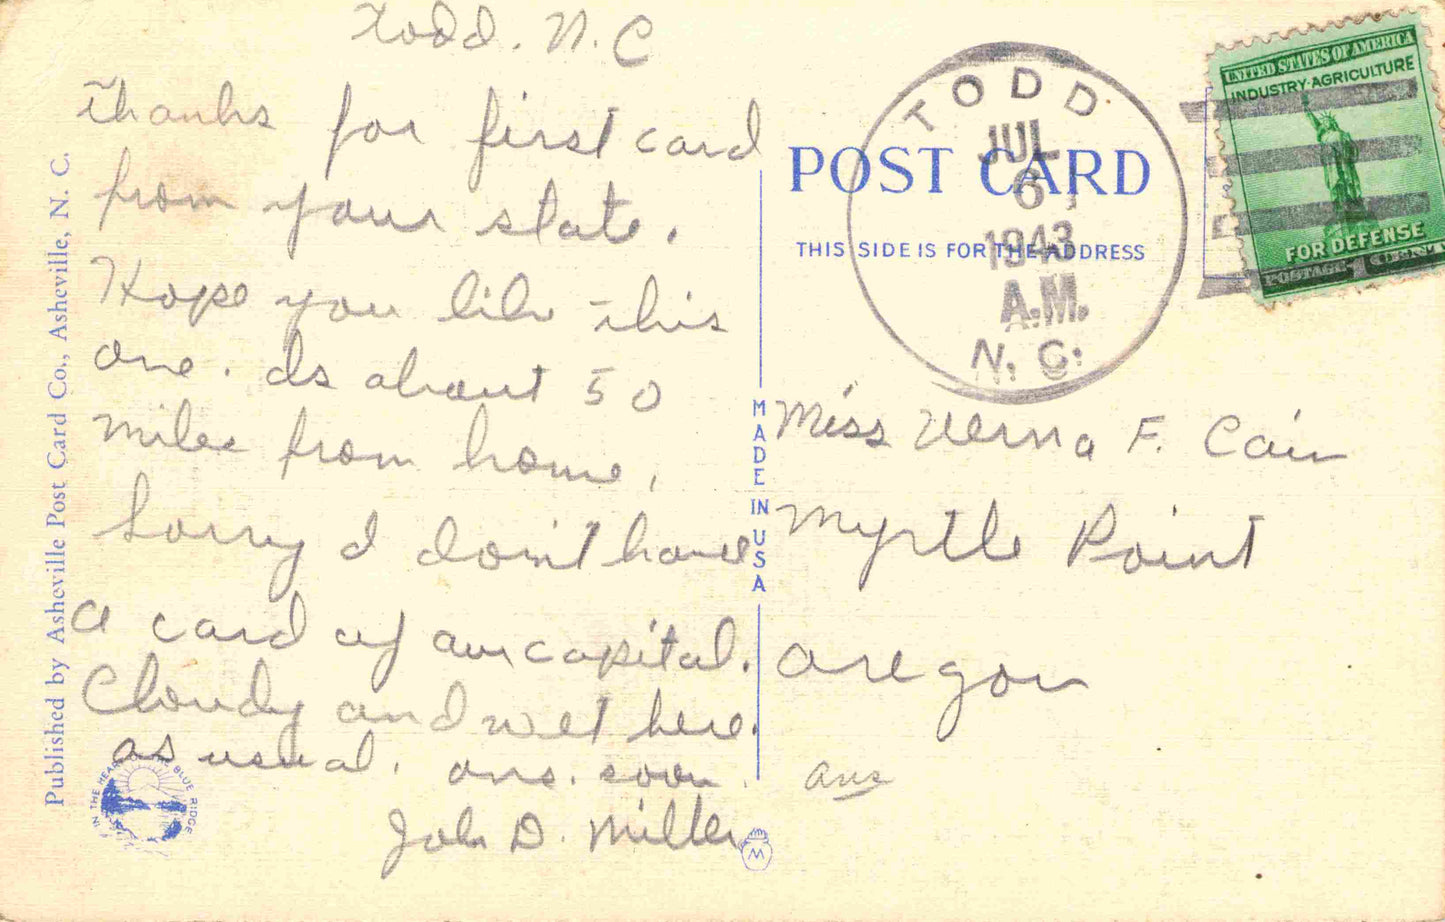 Todd. N.C
Thanks for first card
from your state.
Hope you like this
one. Is about 50
miles from home.
Sorry I don't have
a card of our capital.
Cloudy and wet here.
as usual. ans. soon.
John D. Miller
Published by Asheville Post Card Co., Asheville, N. C.
IN THE HEART OF THE BLUE RIDGE
MADE IN USA
M
POST CARD
THIS SIDE IS FOR THE ADDRESS
TODD
JUL
6
1943
A.M.
N. C.
UNITED STATES OF AMERICA
INDUSTRY·AGRICULTURE
FOR DEFENSE
POSTAGE 1 CENT
Miss Verna F. Cain
Myrtle Point
Oregon
ans